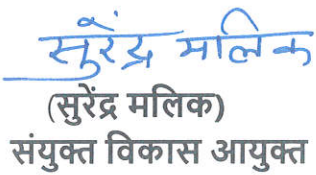 सुरेंद्र मलिक
(सुरेंद्र मलिक)
संयुक्त विकास आयुक्त